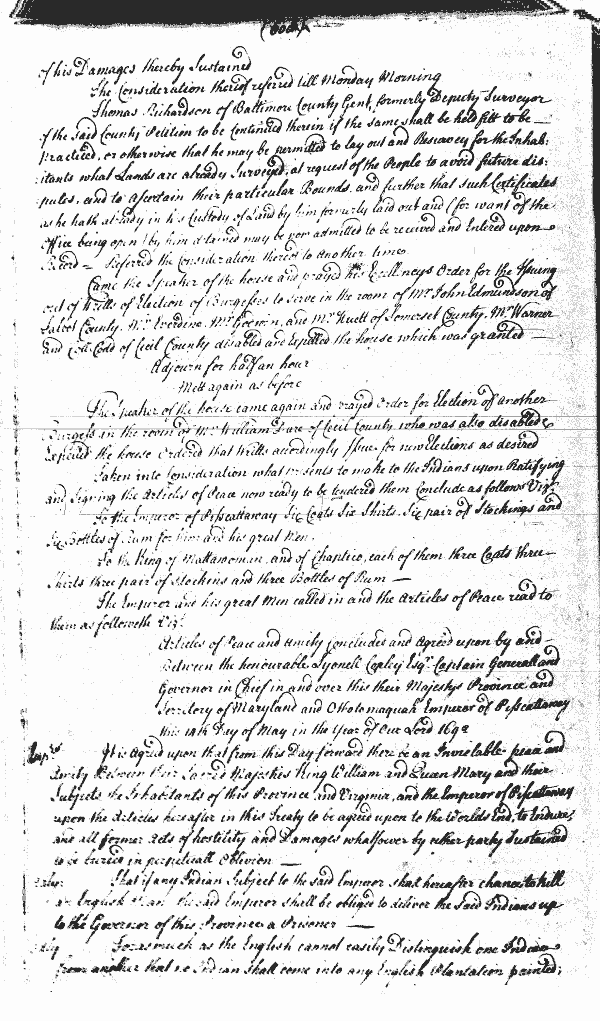 of his Damages thereby Sustained
The Consideration thereof referred till Monday Morning
Thomas Richardson of Baltimore County Gent, formerly Deputy Surveyor
of the Said County Petition to be Continued therein if the same shall be held fitt to be
practiced, or otherwise that he may be permitted to lay out and Resurvey for the Inhab:
:itants what Lands are already Surveyed, at request of the People to avoid future dis:
:putes, and to ascertain their particular Bounds, and further that such Certificates
as he hath already in his Custody of Land by him formerly laid out and (for want of the
Office being open) by him detained may be now admitted to be received and Entered upon
Record — Referred the Consideration thereof to another time.
Came the Speaker of the house and prayed his Excellencys Order for the Issuing
out of Writts of Election of Burgesses to serve in the room of Mr. John Edmundson of
Talbot County, Mr. Everdine, Mr. Goddin, and Mr. Huett of Somerset County, Mr. Warner
and Coll Codd of Cecil County disabled and Expelled the house which was granted —
Adjourn for half an hour
Mett again as before
The Speaker of the house came again and prayed Order for Election of another
Burgess in the room of Mr. William Dare of Cecil County who was also disabled &
Expelled the house Ordered that Writts accordingly Issue for new Elections as desired
Taken into Consideration what Presents to make to the Indians upon Ratifying
and Signing the Articles of Peace now ready to be tendered them Conclude as follows Vizt.
To the Emperor of Pisscattaway Six Coats Six Shirts, Six pair of Stockings and
Six Bottles of Rum for him and his great Men.
To the King of Mattawoman, and of Chaptico, each of them three Coats three
Shirts three pair of Stockins and three Bottles of Rum —
The Emperor and his great Men called in and the Articles of Peace read to
them as followeth Vizt.
Articles of Peace and Amity Concluded and Agreed upon by and
Between the honourable Lyonell Copley Esqr. Captain Generall and
Governor in Chief in and over this their Majestys Province and
Territory of Maryland and Ottotomaquah Emperor of Pisscattaway
this 14th Day of May in the Year of Our Lord 1692
Imps. It is Agreed upon that from this Day forward there be an Inviolable peace and
Amity Between their Sacred Majesties King William and Queen Mary and their
Subjects the Inhabitants of this Province and Virginia, and the Emperor of Piscattaway
upon the Articles hereafter in this Treaty to be agreed upon to the Worlds End, to Endure,
and all former Acts of hostility and Damages whatsoever by either party Sustained
to be buried in perpetuall Oblivion —
That if any Indian Subject to the said Emperor shall hereafter chance to kill
an English Man the said Emperor shall be obliged to deliver the Said Indians up
to the Governor of this Province a Prisoner —
Forasmuch as the English cannot easily Distinguish one Indian
from another that no Indian shall come into any English Plantation painted;